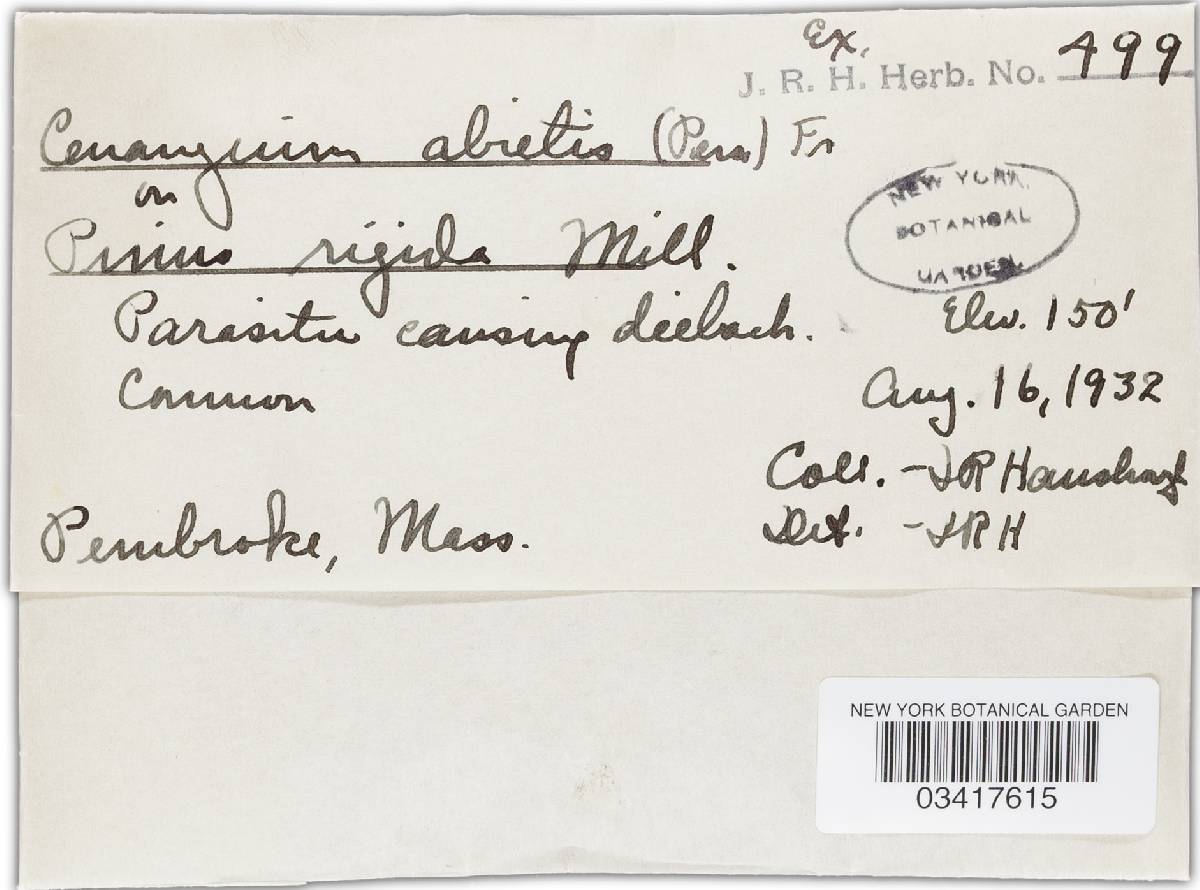 Ex.
J. R. H. Herb. No. 499
Cenangium abietis (Pers) Fr
on
NEW YORK
BOTANICAL
GARDEN
Pinus rigida Mill.
Parasitic causing dieback. Elev. 150'
Common Aug. 16, 1932
Coll. - JR Hansbrough
Pembroke, Mass. Det. - JRH
NEW YORK BOTANICAL GARDEN
03417615